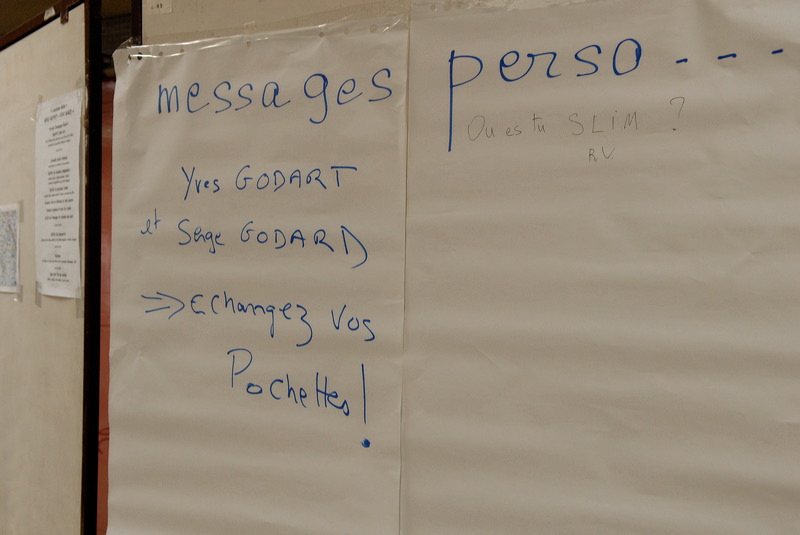 messages perso - - -
Yves GODART
et Serge GODARD
⇒ Echangez Vos
Pochettes!
Ou es tu SLiM ?
RV